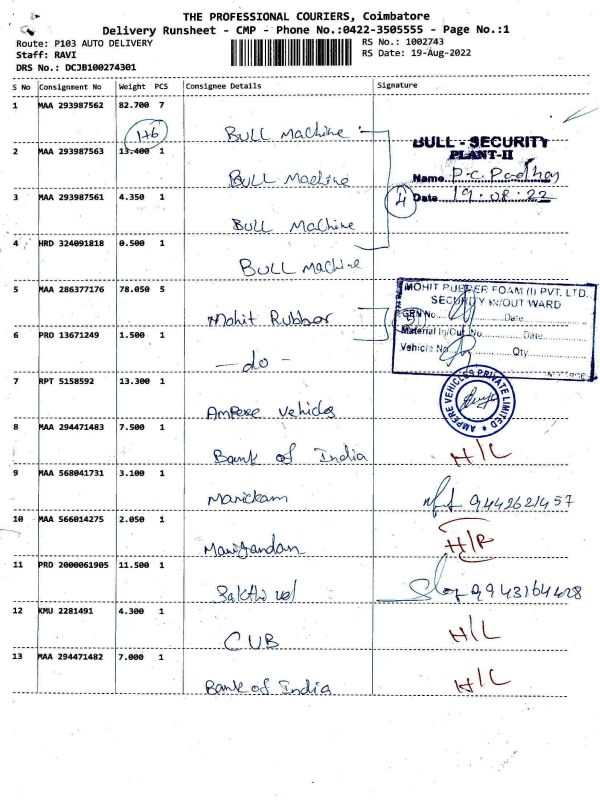 THE PROFESSIONAL COURIERS, Coimbatore
Delivery Runsheet - CMP - Phone No.:0422-3505555 - Page No.:1
Route: P103 AUTO DELIVERY
RS No.: 1002743
Staff: RAVI
RS Date: 19-Aug-2022
DRS No.: DCJB100274301
S No Consignment No Weight PCS Consignee Details Signature
1 MAA 293987562 82.700 7
1+6 BULL Machine
BULL - SECURITY
PLANT-II
2 MAA 293987563 13.400 1
BULL Machine
Name P.C. Padhay
Date 19.08.22
4
3 MAA 293987561 4.350 1
BULL Machine
4 HRD 324091818 0.500 1
BULL Machine
5 MAA 286377176 78.050 5
Mohit Rubber
MOHIT RUBBER FOAM (I) PVT. LTD.
SECURITY IN/OUT WARD
GRN No. Date
Material In/Out No. Date
Vehicle No. Qty.
6 PRO 13671249 1.500 1
- do -
7 RPT 5158592 13.300 1
Ampere Vehicles
AMPERE VEHICLES PRIVATE LIMITED
8 MAA 294471483 7.500 1
Bank of India H/L
9 MAA 568041731 3.100 1
Manickam 9442621457
10 MAA 566014275 2.050 1
Manigandan H/R
11 PRD 2000061905 11.500 1
Sakthi vel 9943164428
12 KMU 2281491 4.300 1
CUB H/L
13 MAA 294471482 7.000 1
Bank of India H/L